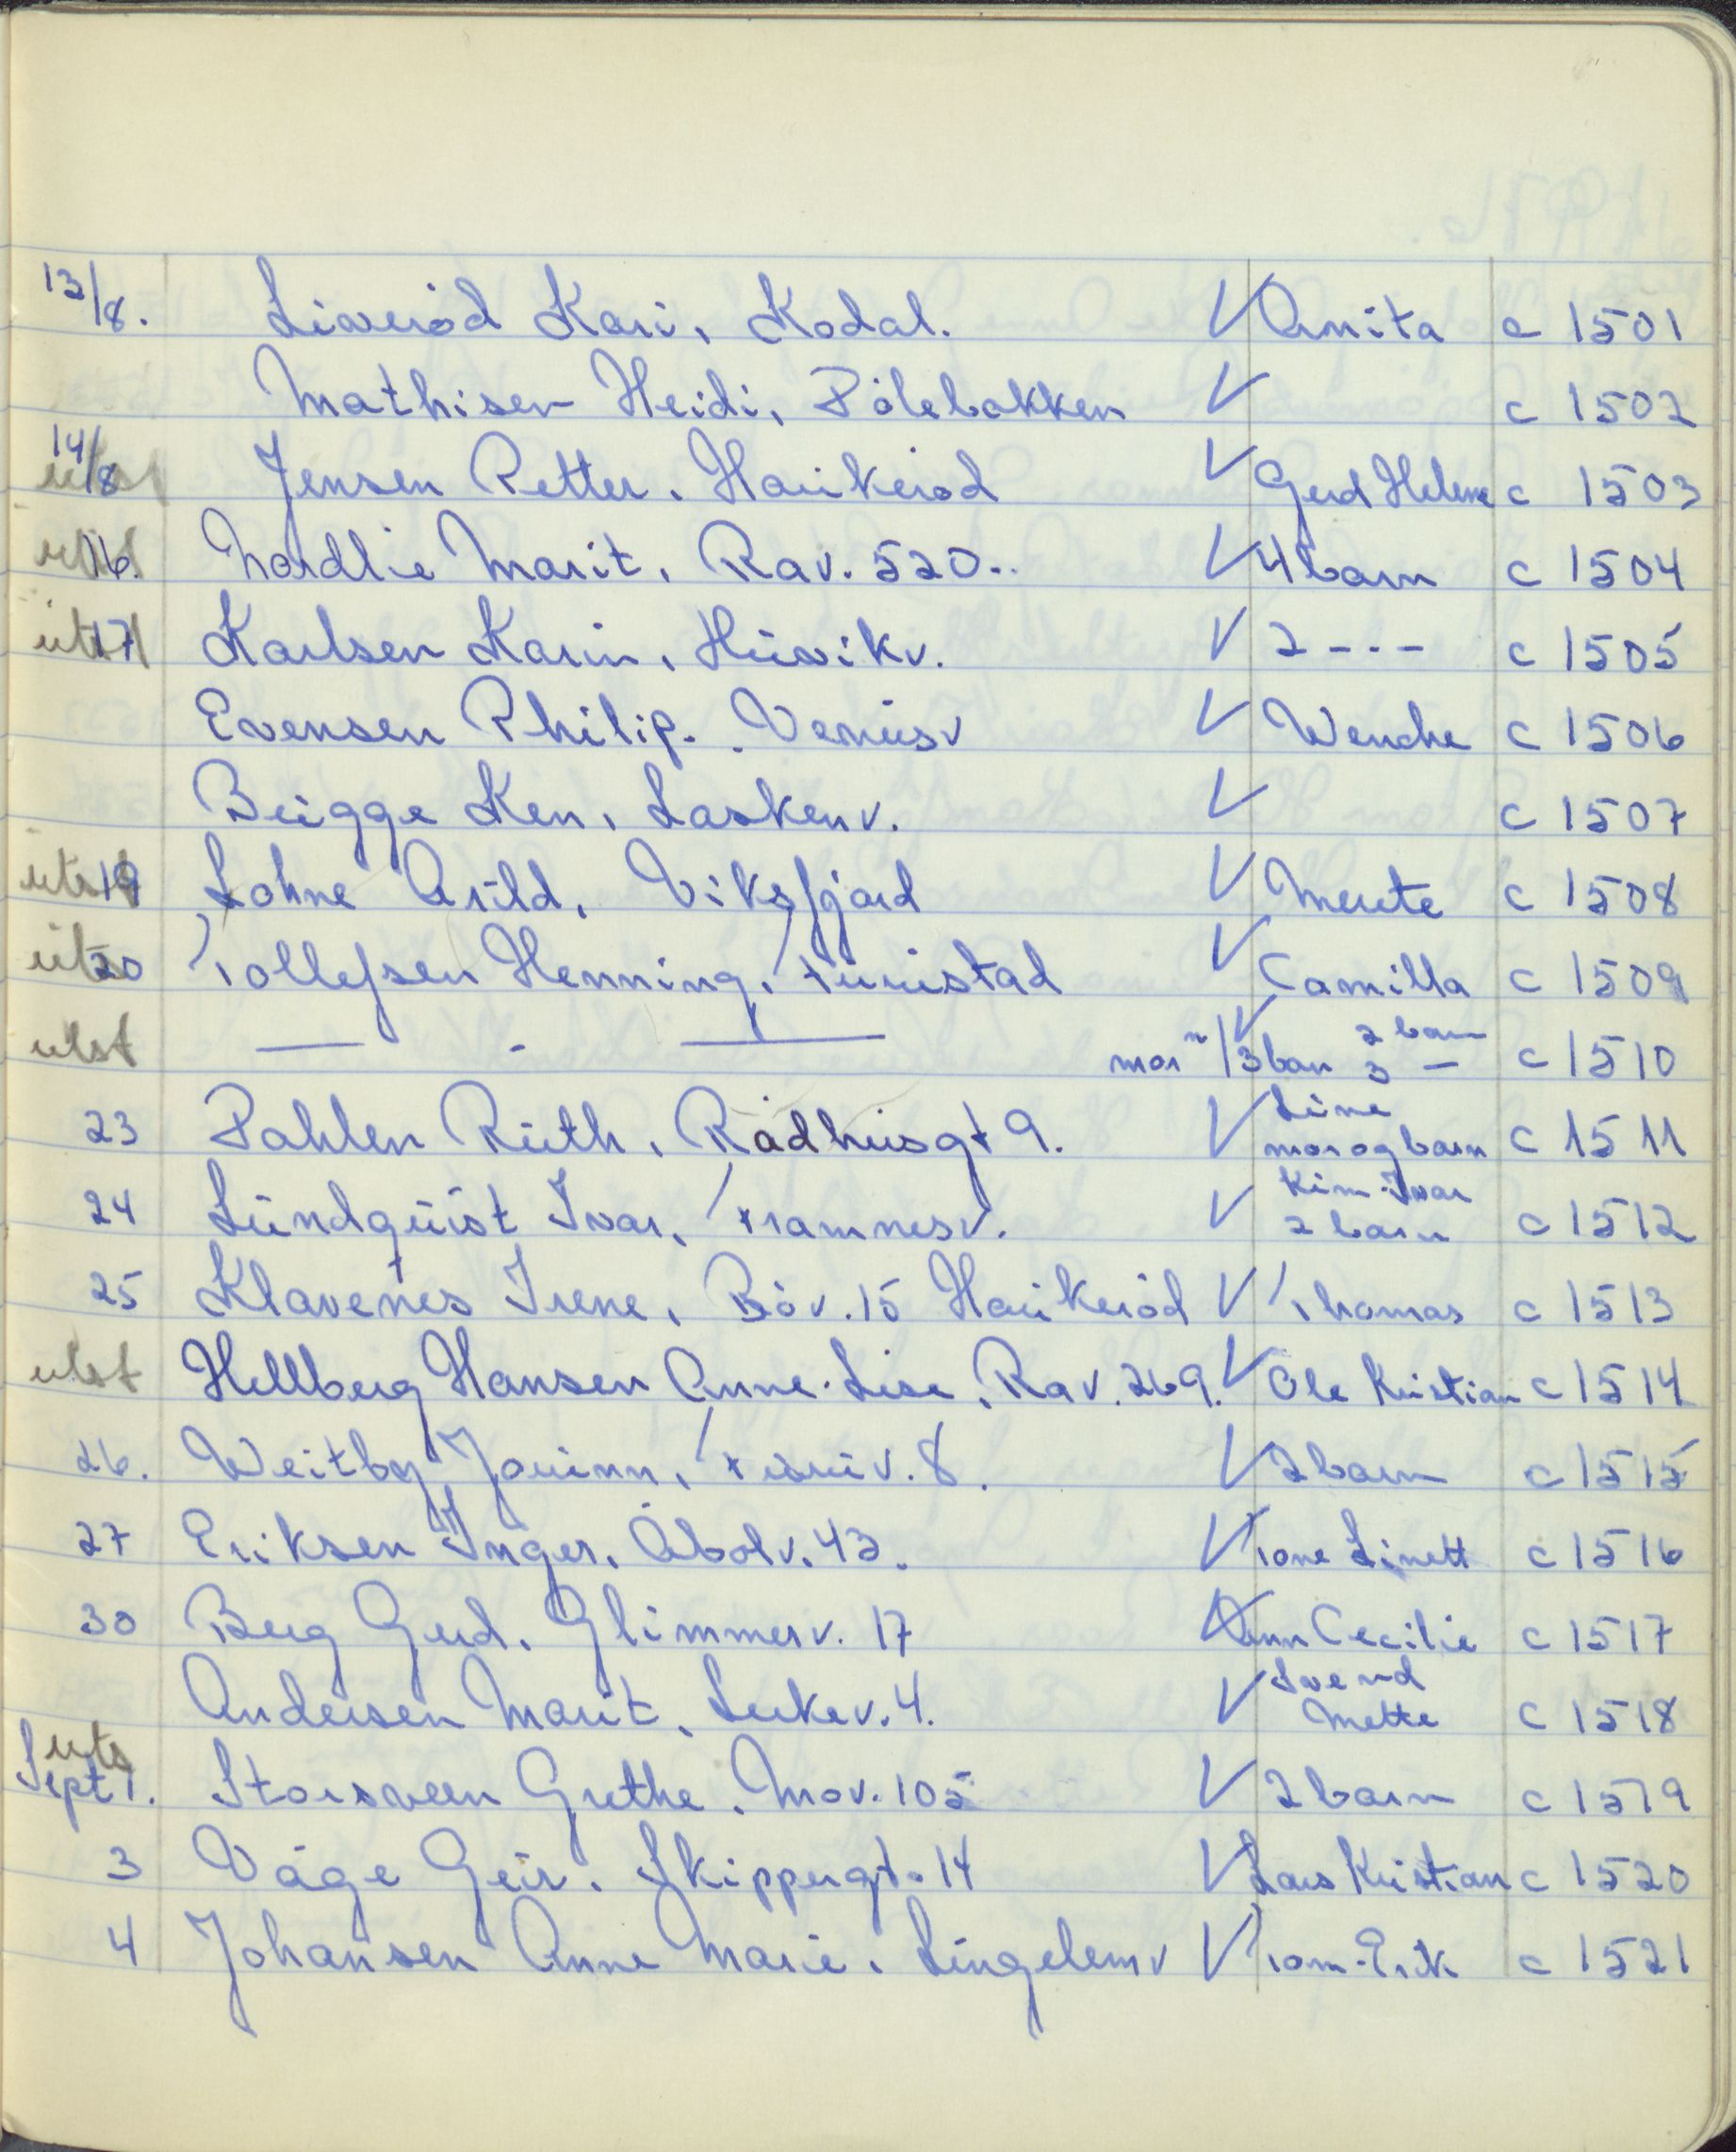 13/8. Liverød Kari, Kodal. V Anita c 1501
Mathisen Heidi, Pölebakken V c 1502
14/8 utst Jensen Petter, Haukerød V Gerd Helene c 1503
utst 16. Nordlie Marit, Rav. 520. V 4 barn c 1504
utst 17 Karlsen Karin, Husvikv. V 2 - - - c 1505
Evensen Philip. Venusv V Wenche c 1506
Bugge Ken, Laskenv. V c 1507
utst 19 Lohne Arild, Viksfjord V Merete c 1508
utst 20 Tollefsen Henning, Furustad V Camilla c 1509
utst — - — mor m/3 barn V 2 barn 3 — c 1510
23 Pahlen Ruth, Rådhusgt 9. V Line mor og barn c 1511
24 Lundquist Ivar, Framnesv. V Kim-Ivar 2 barn c 1512
25 Klavenes Irene, Bøv. 15 Haukerød V Thomas c 1513
utst Hellberg Hansen Anne-Lise, Rav. 269. V Ole Kristian c 1514
26. Weitby Jorunn, v. 8. V 2 barn c 1515
27 Eriksen Inger, Åbolv. 43. V Tone Linett c 1516
30 Berg Gerd, Glimmerv. 17 V Ann Cecilie c 1517
Andersen Marit, Lerkev. 4. V Svend Mette c 1518
uts Sept 1. Storsveen Grethe, Mov. 105 V 2 barn c 1519
3 Våge Geir, Skippergt. 14 V Lars Kristian c 1520
4 Johansen Anne Marie, Lingelemv V Tom-Erik c 1521